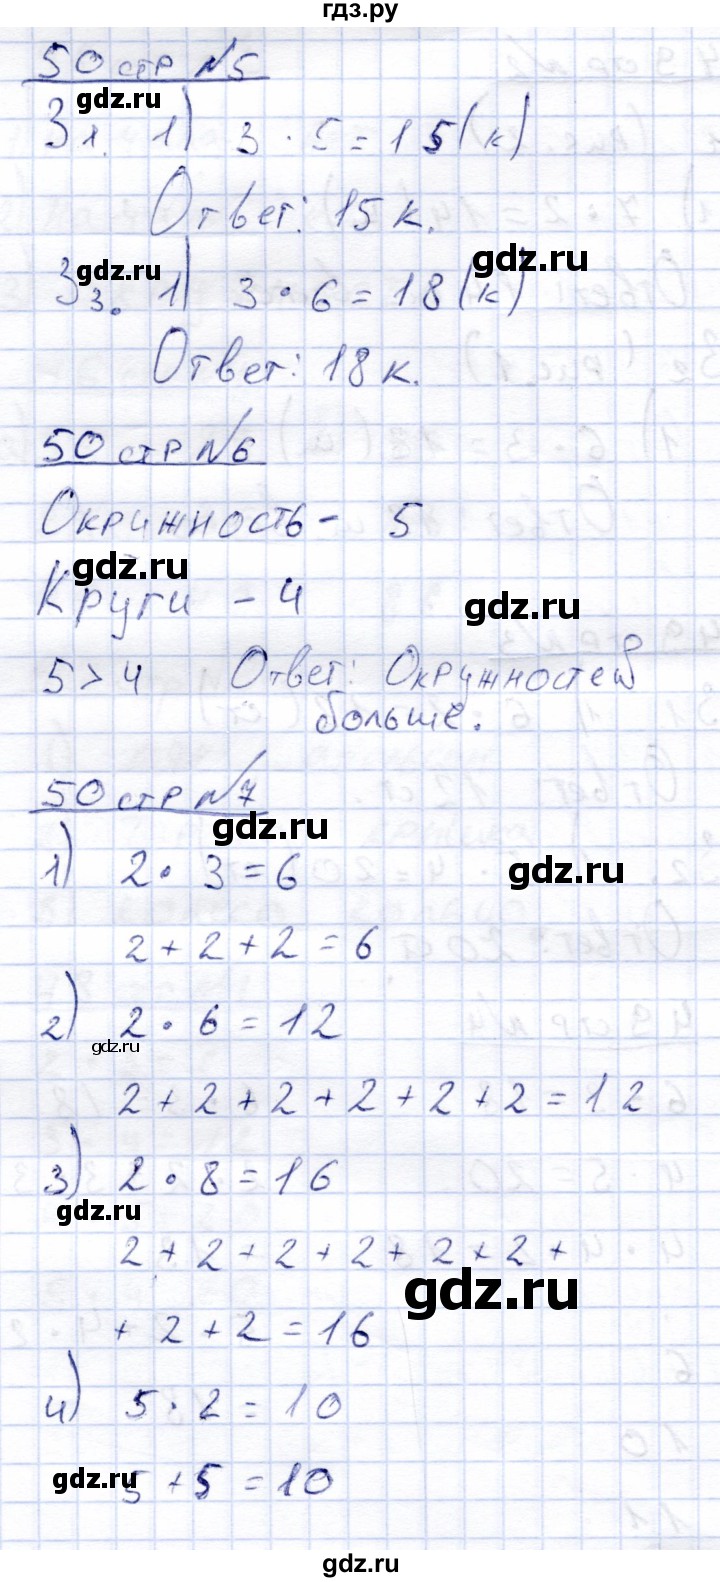 гдз.ру
50 стр №5
gdz.ru
З1. 1) 3 · 5 = 15 (к)
Ответ: 15 к.
gdz.ru
gdz.ru
З3. 1) 3 · 6 = 18 (к)
Ответ: 18 к.
50 стр №6
Окружность - 5
gdz.ru
Круги - 4
gdz.ru
5 > 4 Ответ: Окружностей
больше.
50 стр №7
gdz.ru
1) 2 · 3 = 6
gdz.ru
2 + 2 + 2 = 6
2) 2 · 6 = 12
gdz.ru
2 + 2 + 2 + 2 + 2 + 2 = 12
3) 2 · 8 = 16
gdz.ru
2 + 2 + 2 + 2 + 2 + 2 +
gdz.ru
+ 2 + 2 = 16
4) 5 · 2 = 10
gdz.ru
5 + 5 = 10
gdz.ru